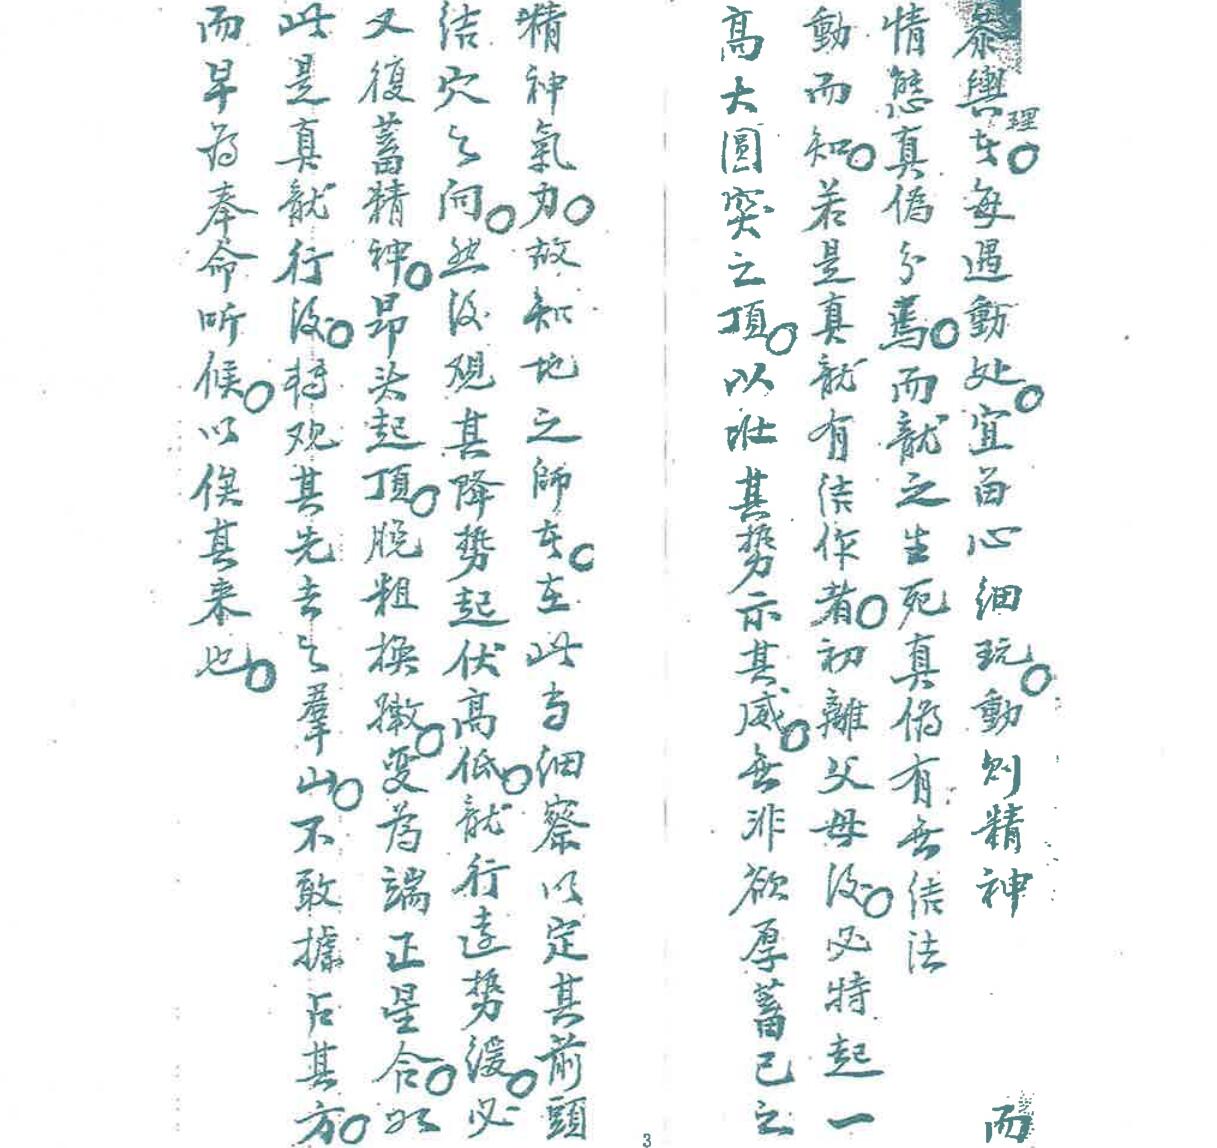 泰輿理者每遇動处宜留心細玩動則精神而
情態真偽分焉而龍之生死真偽有無結法
動而知若是真龍有结作者初離父母後必特起一
高大圓突之頂以壮其勢示其威無非欲厚蓄己之
精神氣力故知地之師者在此当细察以定其前頭
结穴之向然後观其降勢起伏高低龍行遠勢緩必
又復蓄精神昂头起頂脱粗换嫩变為端正星合如
此是真龍行後转观其先去之羣山不敢據占其方
而早為奉命听候以俟其来也
3